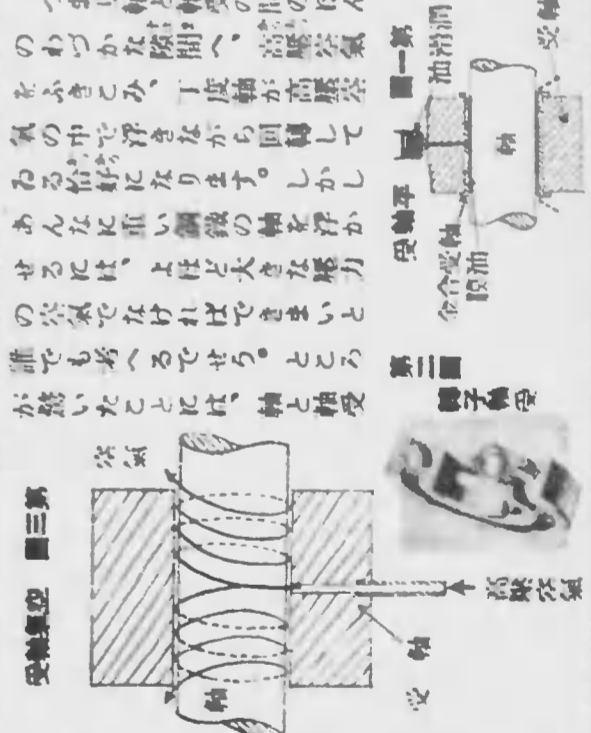 のわづかな隙間へ、高壓空氣
をふきこみ、丁度軸が高壓空
氣の中で浮きながら回轉して
ゐる恰好になります。しかし
あんなに重い鋼鐵の軸を浮か
せるには、よほど大きな壓力
の空氣でなければできまいと
誰でも考へるでせう。ところ
が驚いたことには、軸と軸受
第一圖 平軸受
潤滑油
軸
軸受
軸受合金
油膜
第二圖
子軸受
第三圖 空氣軸受
空氣
軸
軸受
高壓空氣